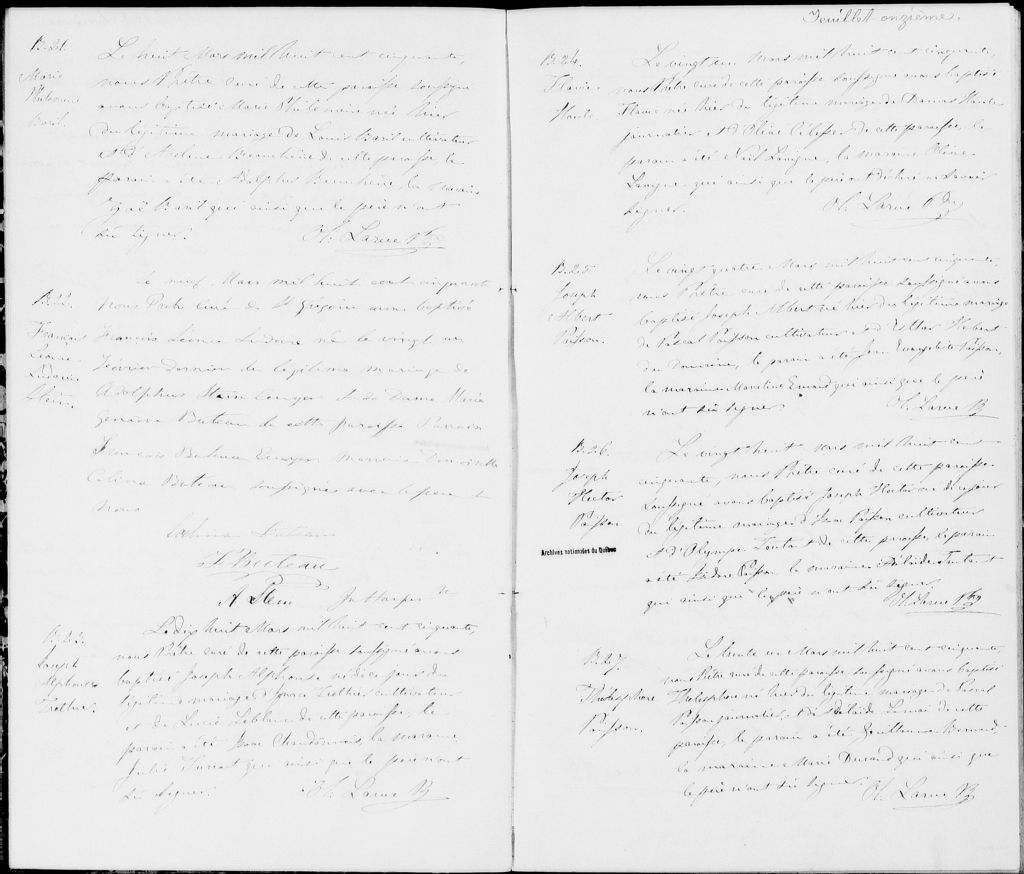 B. 21.
Marie
Philomène
Baril.
Le huit Mars mil huit cent cinquante,
nous Prêtre curé de cette paroisse soussigné
avons baptisé Marie Philomène née hier
du légitime mariage de Louis Baril cultivateur
et d'Adeline Beauchêne de cette paroisse, le
parrain a été Adolphe Beauchêne, la marraine
Baril qui ainsi que le père n'ont
sû signer. Ol. Larue Ptre
B. 22.
François
Léonce
Ludovic
Stein.
Le neuf Mars mil huit cent cinquante
nous Prêtre curé de St Grégoire avons baptisé
François Léonce né le vingt un
Février dernier du légitime mariage de
Adolphus Stein Ecuyer et de Dame Marie
Buteau de cette paroisse Parrain
François Buteau Ecuyer Marraine Demoiselle
Célina Buteau soussignés avec le père et
nous
Célina Buteau
F. Buteau
A Stein J. Harper Ptre
B. 23.
Joseph
Alphonse
Trothier.
Le dix huit Mars mil huit cent cinquante,
nous Prêtre curé de cette paroisse soussigné avons
baptisé Joseph Alphonse né dice jour du
légitime mariage d' Trothier cultivateur
et de Lucie Leblanc de cette paroisse, le
parrain a été Isaac, la marraine
Julie qui ainsi que le père n'ont
sû signer. Ol. Larue Ptre
Feuillet onzième.
B. 24.
Flavie
Houle
Le vingt un Mars mil huit cent cinquante,
nous Prêtre curé de cette paroisse soussigné avons baptisé
Flavie née hier du légitime mariage de Damas Houle
journalier et d'Olive de cette paroisse, le
parrain a été Lavigne, la marraine Olive
Lavigne qui ainsi que le père ont déclaré ne savoir
signer. Ol. Larue Ptre
B. 25
Joseph
Albert
Poisson.
Le vingt quatre Mars mil huit cent cinquante,
nous Prêtre curé de cette paroisse soussigné avons
baptisé Joseph Albert né hier du légitime mariage
de Pascal Poisson cultivateur et d'Esther Hébert
du Domaine, le parrain a été Jean Evangeliste Poisson,
la marraine qui ainsi que le père
n'ont sû signer. Ol. Larue Ptre
B. 26.
Joseph
Hector
Poisson
Le vingt huit Mars mil huit cent
cinquante, nous Prêtre curé de cette paroisse
soussigné avons baptisé Joseph Hector né dice jour
du légitime mariage d'Isaac Poisson cultivateur
et d'Olympe Toutant de cette paroisse, le parrain
a été Isidore Poisson la marraine Adélaïde Toutant
qui ainsi que le père n'ont sû signer.
Ol. Larue Ptre
Archives nationales du Québec
B. 27.
Thélesphore
Poisson.
Le trente un Mars mil huit cent cinquante,
nous Prêtre curé de cette paroisse soussigné avons baptisé
Thélesphore né hier du légitime mariage de
Poisson journalier, et d'Adélaïde Lemai de cette
paroisse, le parrain a été Guillaume
la marraine Marie Durand qui ainsi que
le père n'ont sû signer. Ol. Larue Ptre